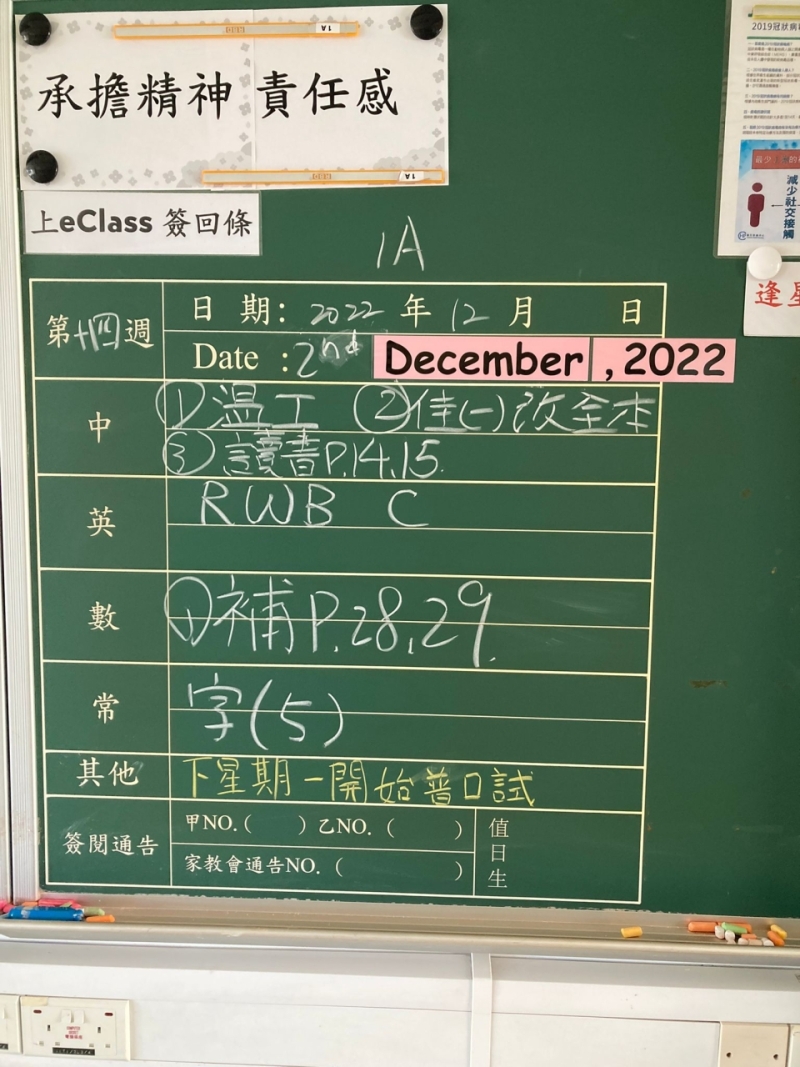 承擔精神 責任感
1A
1A
上eClass 簽回條
1A
第十四週
日 期： 2022 年 12 月 日
Date : 2nd December , 2022
中
① 温工 ② 佳(一)改全本
③ 讀書P.14,15.
英
RWB C
數
① 補P.28,29.
常
字(5)
其他
下星期一開始普口試
簽閱通告
甲NO.( ) 乙NO. ( )
家教會通告NO. ( )
值日生
2019冠狀病
最少
減少社交接觸
逢星